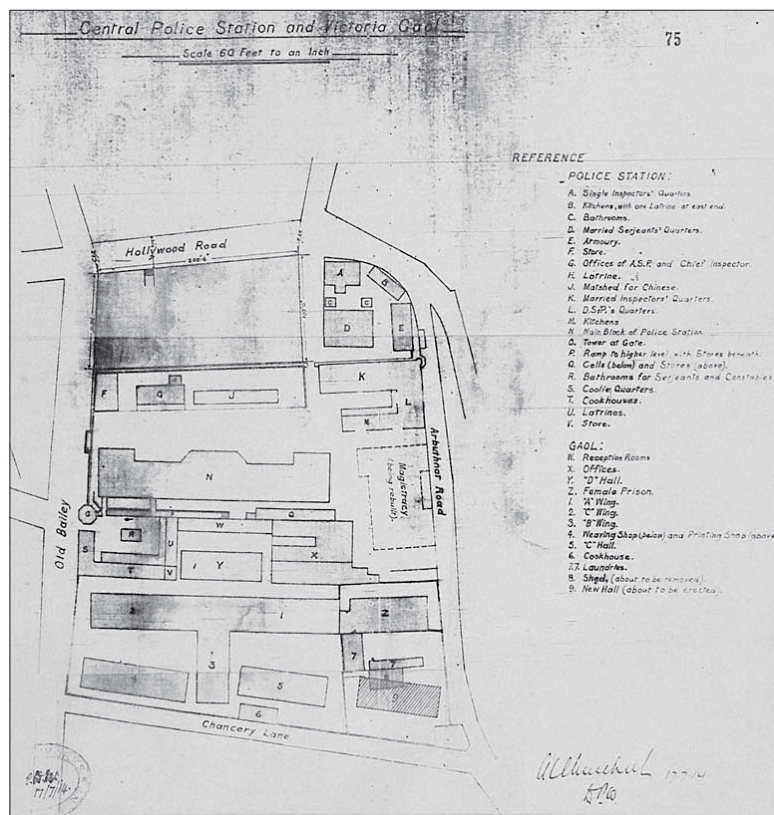 Central Police Station and Victoria Gaol
Scale 60 Feet to an Inch
75
REFERENCE
POLICE STATION:
A. Single Inspectors' Quarters
B. Kitchens, with one Latrine at east end.
C. Bathrooms.
D. Married Serjeants' Quarters.
E. Armoury.
F. Store.
G. Offices of A.S.P. and Chief Inspector.
H. Latrine.
J. Matshed for Chinese.
K. Married Inspectors' Quarters.
L. D.S.P.'s Quarters.
M. Kitchens
N. Main Block of Police Station
O. Tower at Gate.
P. Ramp to higher level with Stores beneath
Q. Cells (below) and Stores (above).
R. Bathrooms for Serjeants and Constables
S. Coolie Quarters.
T. Cookhouses.
U. Latrines.
V. Store.
GAOL:
W. Reception Rooms
X. Offices.
Y. "D" Hall.
Z. Female Prison.
1. "A" Wing.
2. "C" Wing.
3. "B" Wing.
4. Weaving Shop (below) and Printing Shop (above
5. "C" Hall.
6. Cookhouse.
7.7. Laundries.
8. Shed, (about to be removed).
9. New Hall (about to be erected).
Hollywood Road
200'-6"
A
B
C
C
D
E
F
G
J
K
L
M
N
Magistracy
(being rebuilt)
Arbuthnot Road
Old Bailey
O
Q
R
S
T
U
V
W
X
Y
Z
1
2
3
4
5
6
7
7
9
Chancery Lane
17/7/14
17.7.14